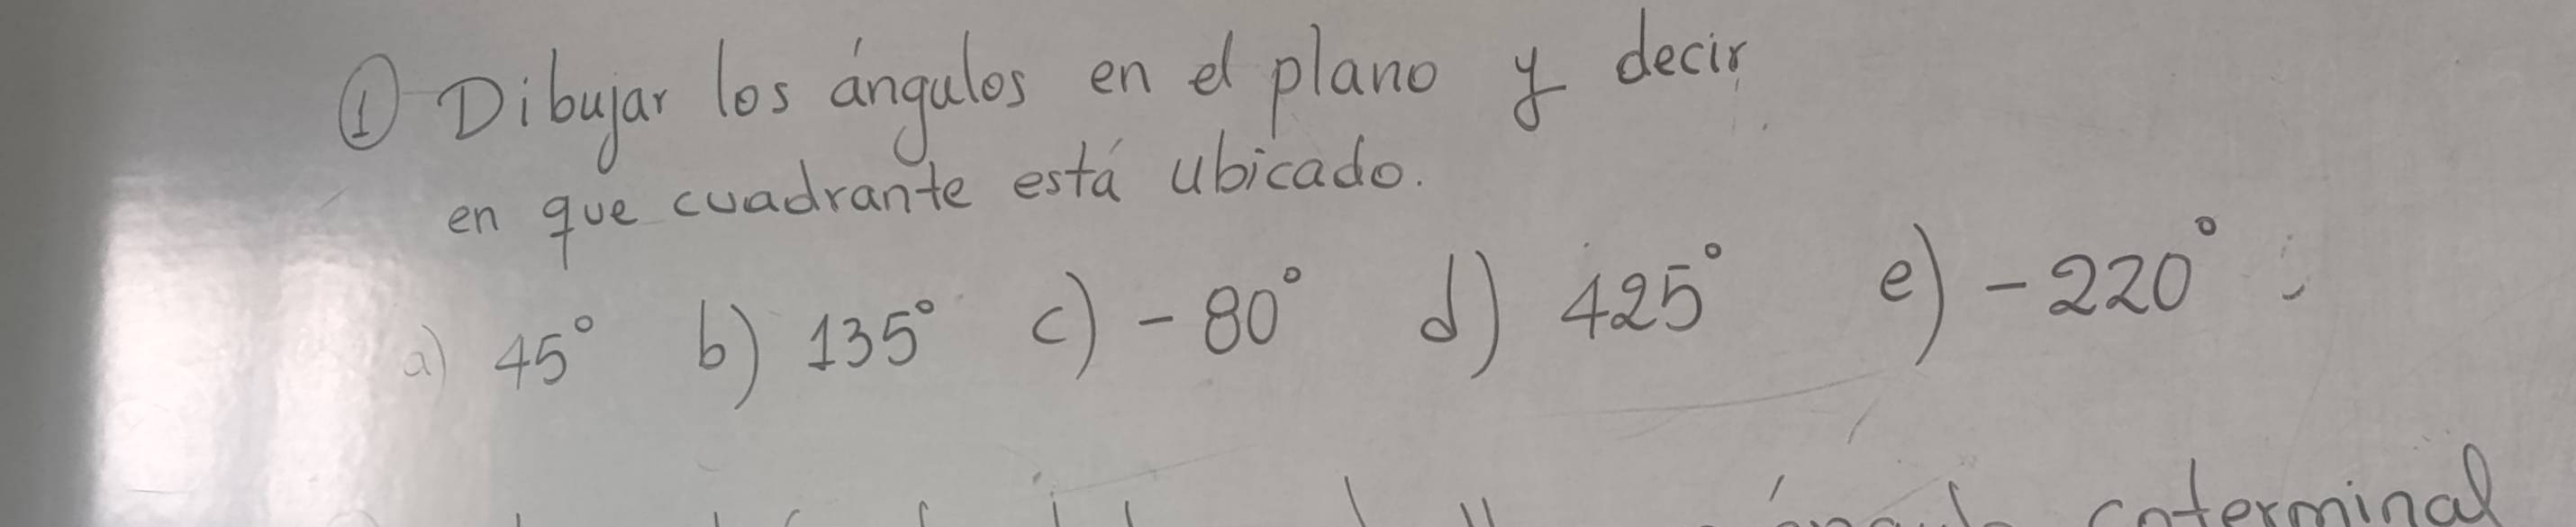 ① Dibujar los ángulos en el plano y decir
en que cuadrante está ubicado.
a) 45° b) 135° c) -80° d) 425° e) -220°
coterminal